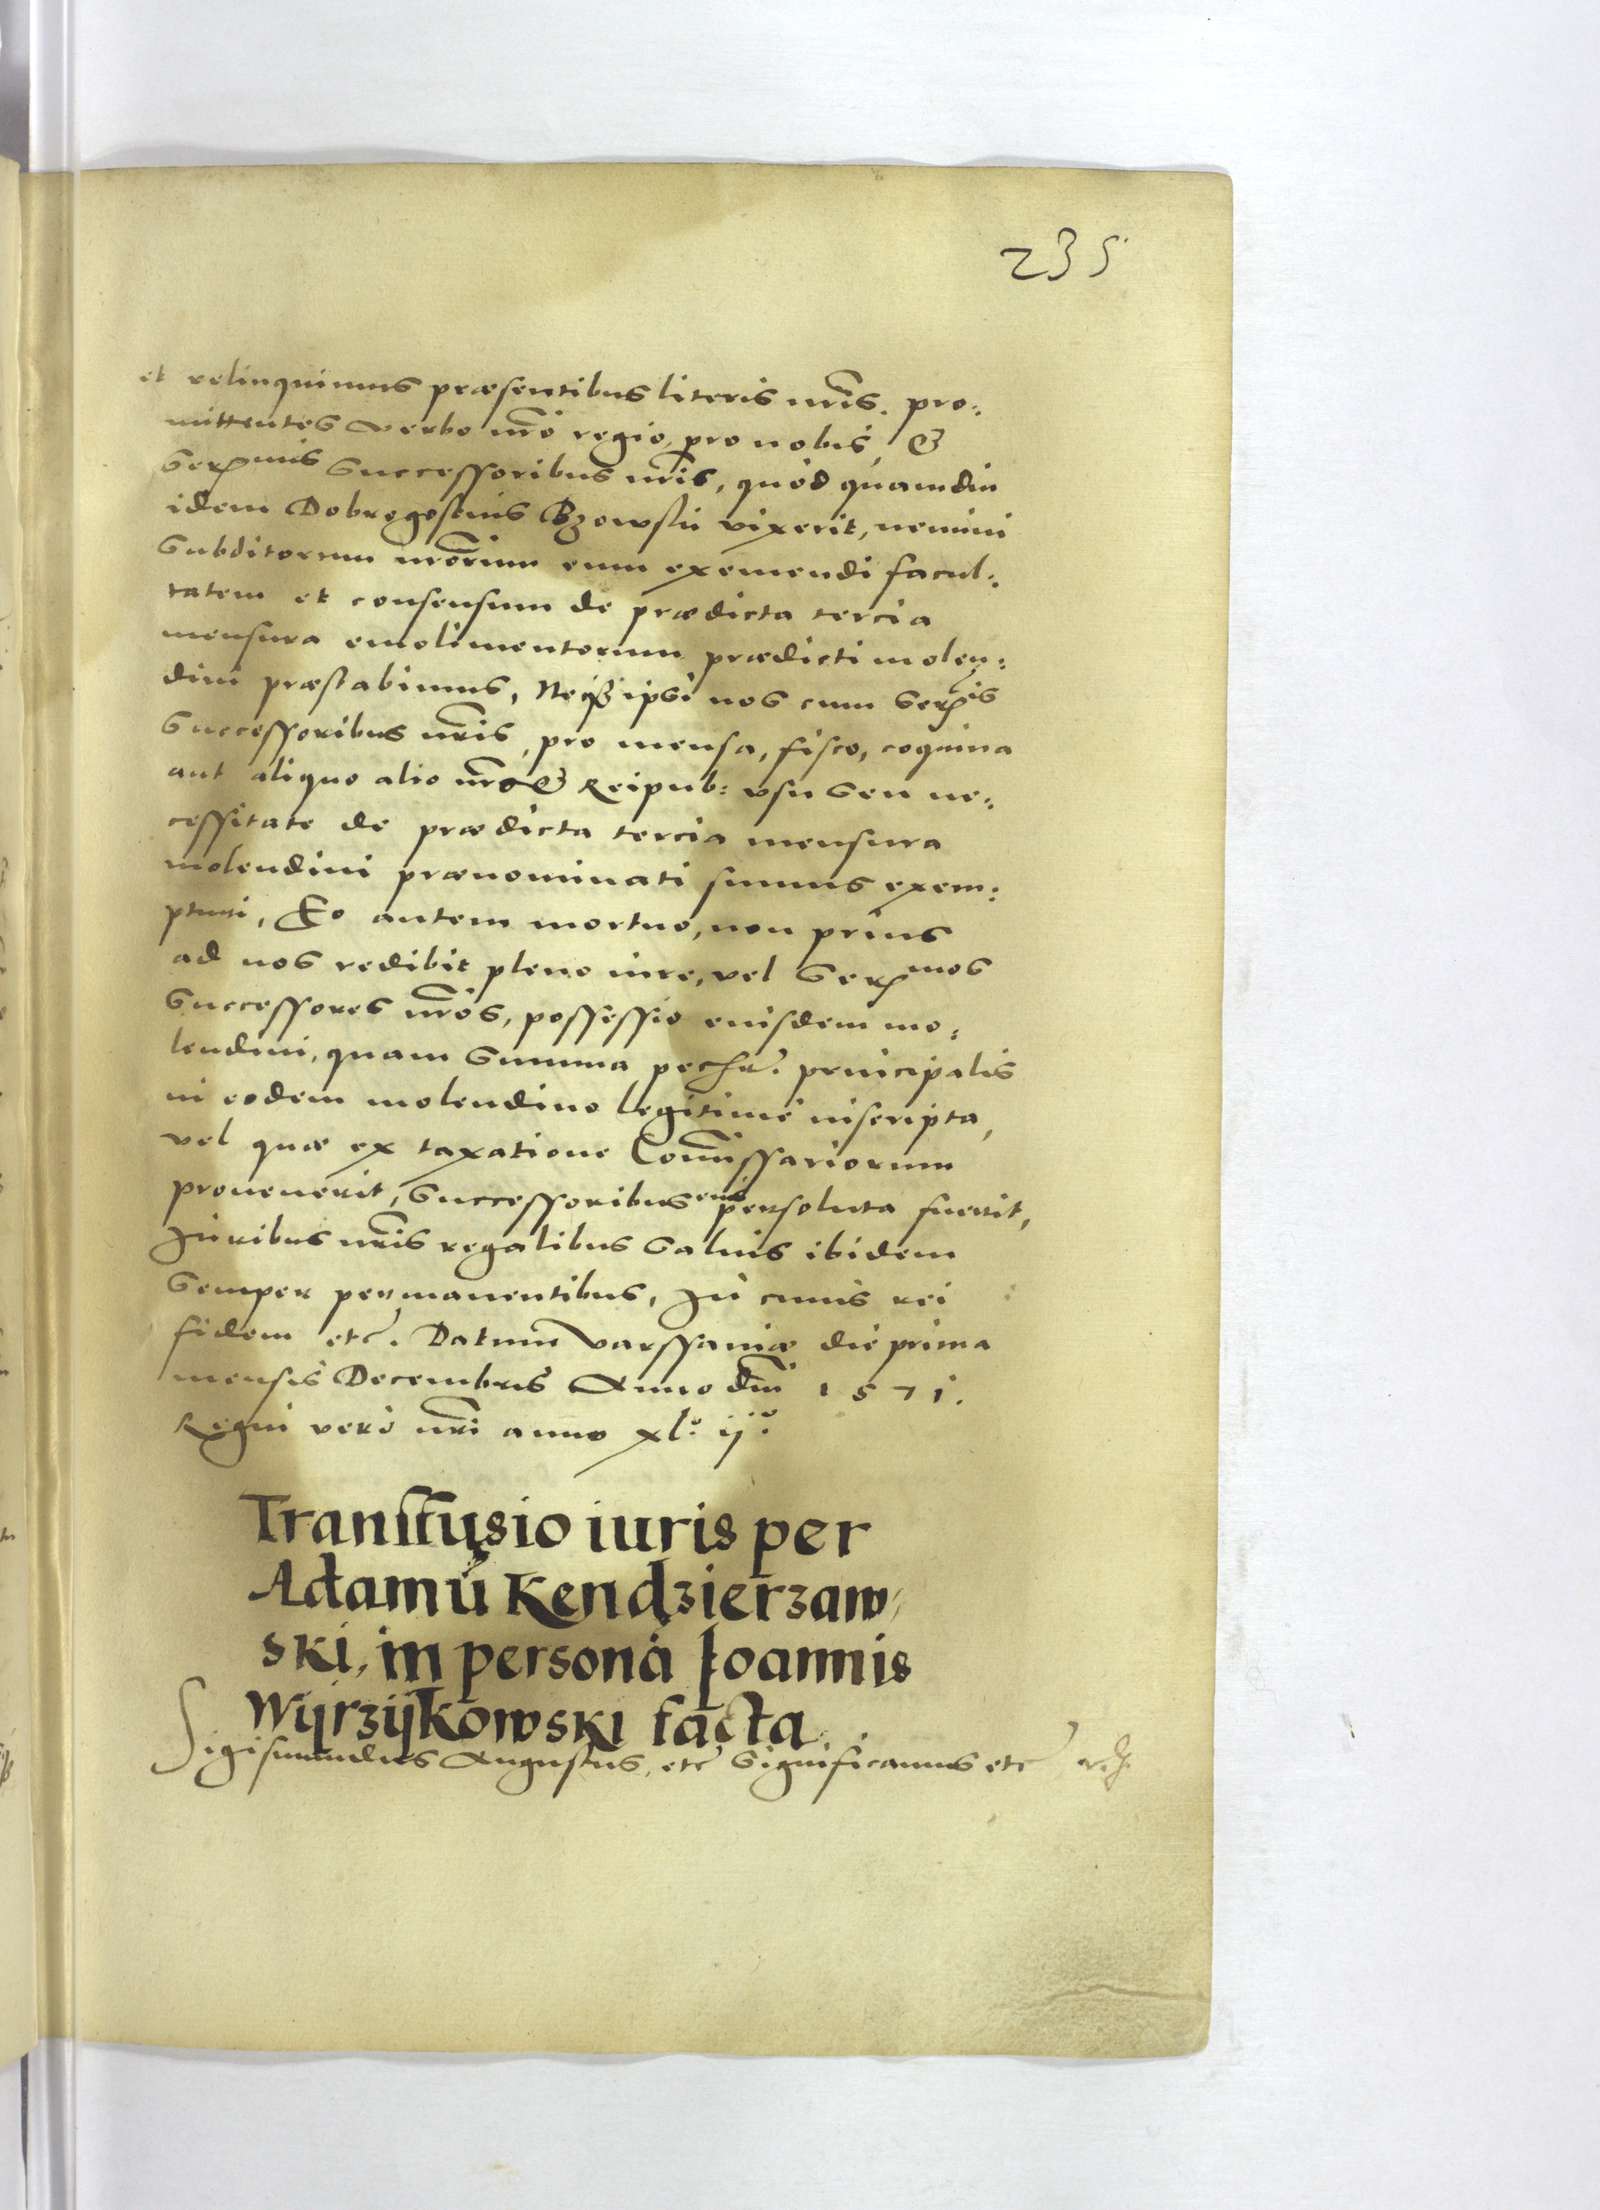 235
et relinquimus præsentibus literis nr̃is. pro:
mittentes verbo nr̃o regio, pro nobis, &
Ser[mis] Successoribus nr̃is, quòd quamdiu
idem Dobrogostius Bzowski vixerit, nemini
Subditorum nr̃orum eum exemendi facul:
tatem et consensum de prædicta tercia
mensura emolimentorum prædicti molen:
dini præstabimus, Neq3 ipsi nos cum Ser[mis]
Successoribus nr̃is, pro mensa, fisco, coquina
aut aliquo alio nr̃o & Reipub: vsu seu ne:
cessitate de prædicta tercia mensura
molendini prænominati sumus exem:
pturi, Eo autem mortuo, non prius
ad nos redibit pleno iure, vel Ser[mos]
Successores nr̃os, possessio eiusdem mo:
lendini, quam Summa pecũ. principalis
in eodem molendino legitimè inscripta,
vel quæ ex taxatione Com̃issariorum
prouenerit, Successoribus eius persoluta fuerit,
Iuribus nr̃is regalibus Saluis ibidem
Semper permanentibus, In cuius rei
fidem etc. Datum Varssauiæ die prima
mensis Decembris Anno dni 1571.
Regni verò nr̃i anno xl° ij°
Transfusio iuris per
Adamũ Kendzierzaw,
ski, in persona Joannis
Wijrzijkowski facta
Sigismundus Augustus, etc Significamus etc